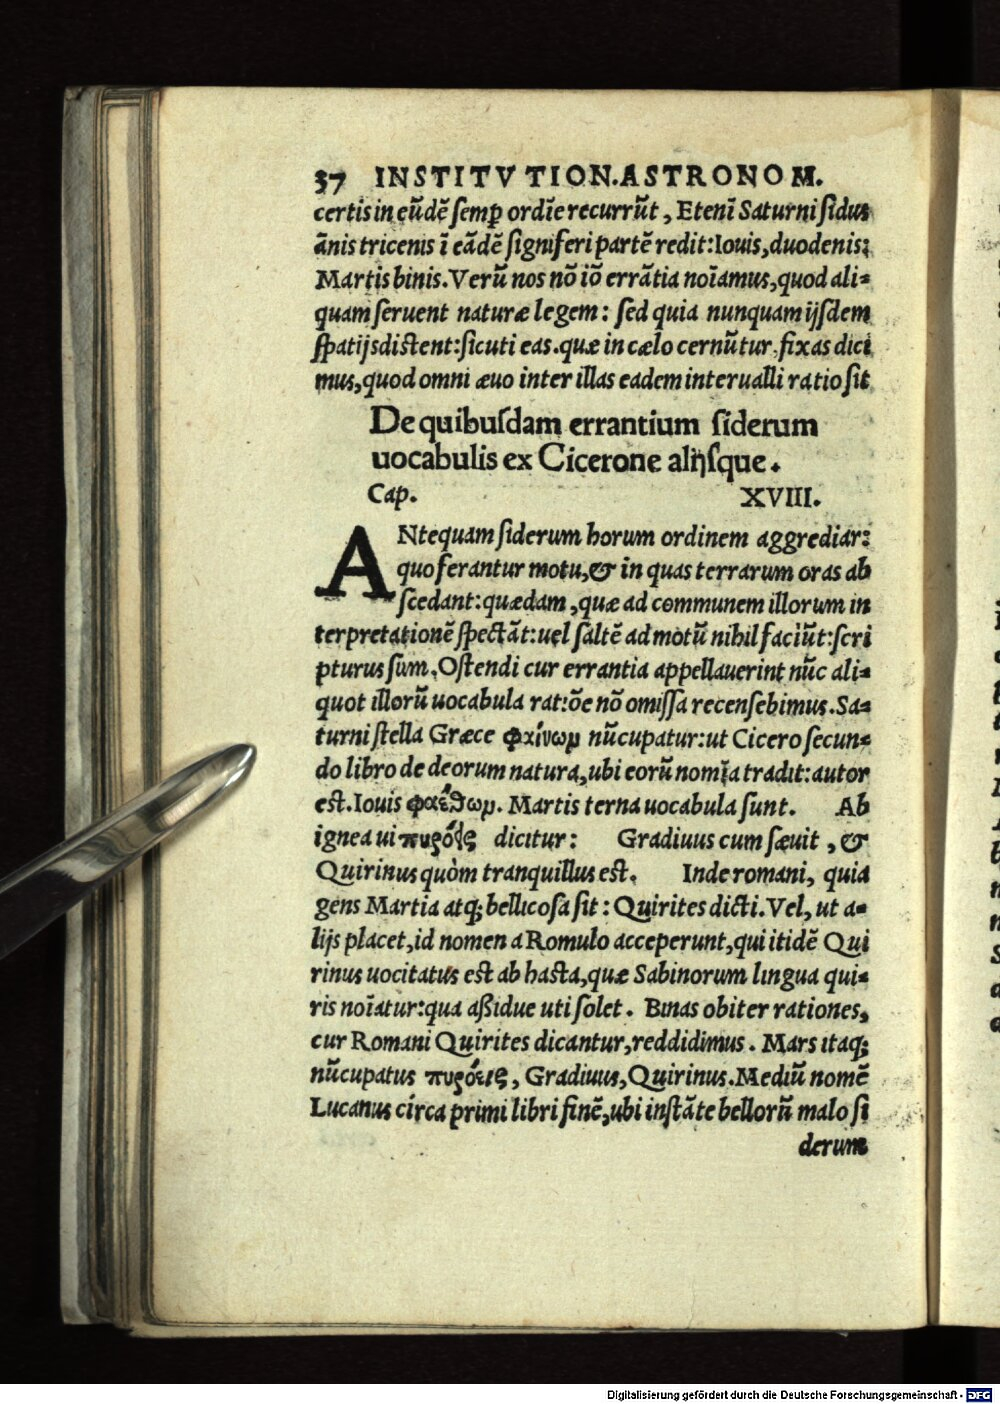 37 INSTITVTION.ASTRONOM.
certis in eũdẽ semꝑ ordĩe recurrũt, Etenĩ Saturni sidus
ãnis tricenis ĩ eãdẽ signiferi partẽ redit: Iouis, duodenis:
Martis binis. Verũ nos nõ iõ errãtia noĩamus, quod ali-
quam seruent naturæ legem: sed quia nunquam ijsdem
spatijs distent: sicuti eas. quæ in cælo cernũtur, fixas dici
mus, quod omni æuo inter illas eadem interualli ratio sit
De quibusdam errantium siderum
uocabulis ex Cicerone alijsque.
Cap. XVIII.
ANtequam siderum horum ordinem aggrediar:
quo ferantur motu, & in quas terrarum oras ab
scedant: quædam, quæ ad communem illorum in
terpretationẽ spectãt: uel saltẽ ad motũ nihil faciũt: scri
pturus sum. Ostendi cur errantia appellauerint nũc ali-
quot illorũ uocabula ratiõe nõ omissa recensebimus. Sa-
turni stella Græce φαίνωμ nũcupatur: ut Cicero secun-
do libro de deorum natura, ubi eorũ nomĩa tradit: autor
est. Iouis φαέθωμ. Martis terna uocabula sunt. Ab
ignea ui πυρόεις dicitur: Gradiuus cum sæuit, &
Quirinus quòm tranquillus est. Inde romani, quia
gens Martia atq; bellicosa sit: Quirites dicti. Vel, ut a-
lijs placet, id nomen a Romulo acceperunt, qui itidẽ Qui
rinus uocitatus est ab hasta, quæ Sabinorum lingua qui-
ris noĩatur: qua aßidue uti solet. Binas obiter rationes,
cur Romani Quirites dicantur, reddidimus. Mars itaq;
nũcupatus πυρόεις, Gradiuus, Quirinus. Mediũ nomẽ
Lucanus círca primi libri finẽ, ubi instãte bellorũ malo si
derum
Digitalisierung gefördert durch die Deutsche Forschungsgemeinschaft - DFG